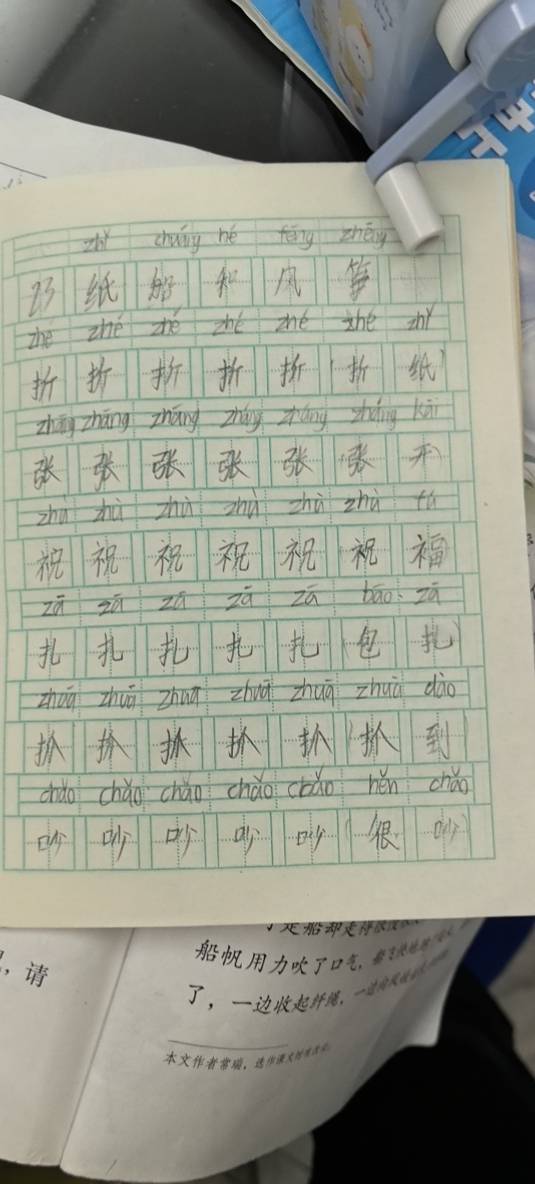 zhǐ chuáng hé fēng zhēng
23 纸 船 和 风 筝
zhé zhé zhé zhé zhé zhé zhǐ
折 折 折 折 折 (折 纸)
zhāng zhāng zhāng zhāng zhāng zhāng kāi
张 张 张 张 张 (张 开)
zhù zhù zhù zhù zhù zhù fú
祝 祝 祝 祝 祝 (祝 福)
zā zā zā zā zā bāo zā
扎 扎 扎 扎 扎 (包 扎)
zhuā zhuā zhuā zhuā zhuā zhuā dào
抓 抓 抓 抓 抓 (抓 到)
chǎo chǎo chǎo chǎo chǎo hěn chǎo
吵 吵 吵 吵 吵 (很 吵)
了是船却走得很慢
船帆用力吹了口气，船飞快地
，请
了，一边收起纤绳，一边向风
本文作者常瑞，选作课文时有改动。